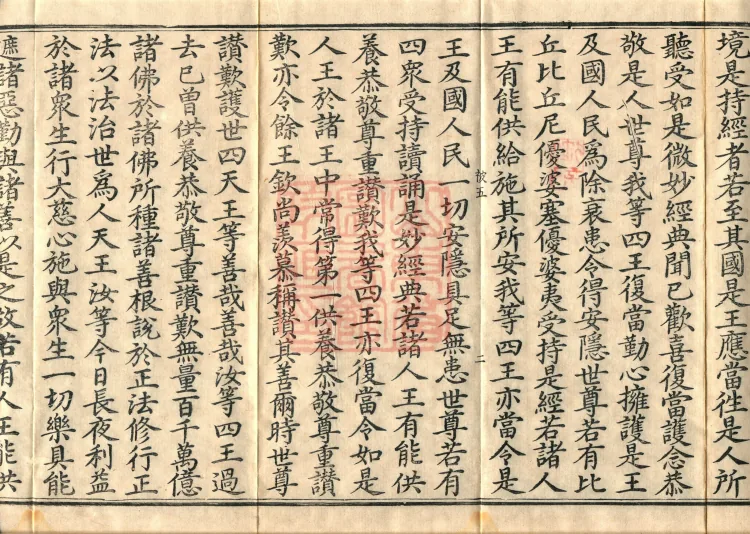 境是持經者若至其國是王應當往是人所
聽受如是微妙經典聞已歡喜復當護念恭
敬是人世尊我等四王復當勤心擁護是王
及國人民為除衰患令得安隱世尊若有比
丘比丘尼優婆塞優婆夷受持是經若諸人
王有能供給施其所安我等四王亦當令是
王及國人民一切安隱具足無患世尊若有
四眾受持讀誦是妙經典若諸人王有能供
養恭敬尊重讚歎我等四王亦復當令如是
人王於諸王中常得第一供養恭敬尊重讚
歎亦令餘王欽尚羨慕稱讚其善爾時世尊
讚歎護世四天王等善哉善哉汝等四王過
去已曾供養恭敬尊重讚歎無量百千萬億
諸佛於諸佛所種諸善根說於正法修行正
法以法治世為人天王汝等今日長夜利益
於諸眾生行大慈心施與眾生一切樂具能
遮諸惡勸與諸善以是之故若有人王能供